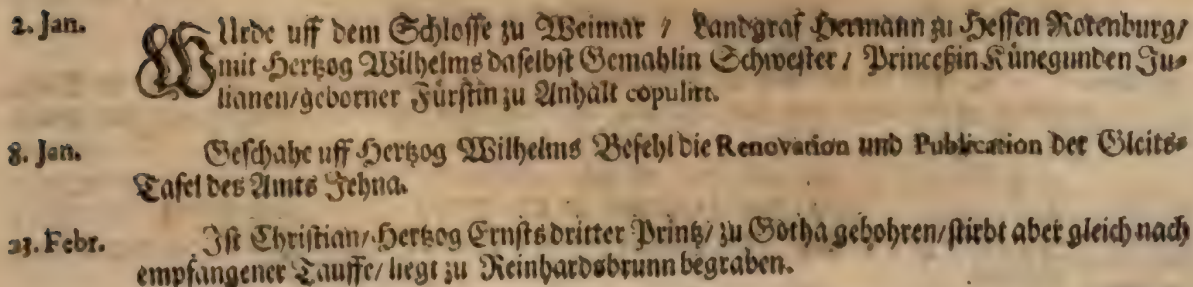 2. Jan. WUrde uff dem Schlosse zu Weimar / Landgraf Hermann zu Hessen Rotenburg/
mit Hertzog Wilhelms daselbst Gemahlin Schwester / Princeßin Künegunden Ju-
lianen/geborner Fürstin zu Anhalt copulirt.
8. Jan. Geschahe uff Hertzog Wilhelms Befehl die Renovation und Publication der Gleits-
Tafel des Amts Jehna.
23. Febr. Ist Christian/Hertzog Ernsts dritter Printz/ zu Gotha gebohren/stirbt aber gleich nach
empfangener Tauffe/ liegt zu Reinhardsbrunn begraben.